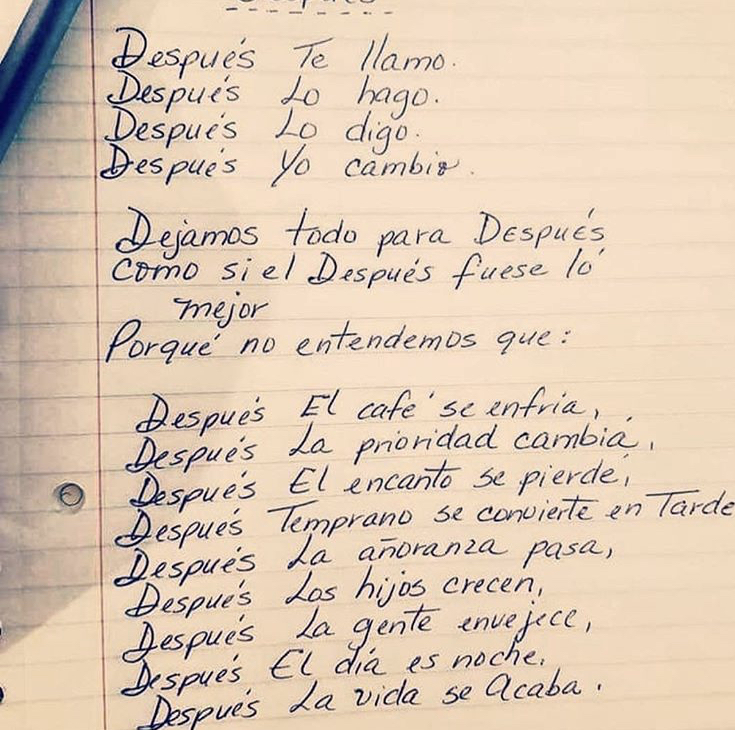 Después Te llamo.
Después Lo hago.
Después Lo digo.
Después Yo cambio.
Dejamos todo para Después
como si el Después fuese ló
mejor
Porqué no entendemos que:
Después El café se enfría,
Después La prioridad cambiá,
Después El encanto se pierde,
Después Temprano se convierte en Tarde
Después La añoranza pasa,
Después Los hijos crecen,
Después La gente envejece,
Después El día es noche.
Después La vida se Acaba.